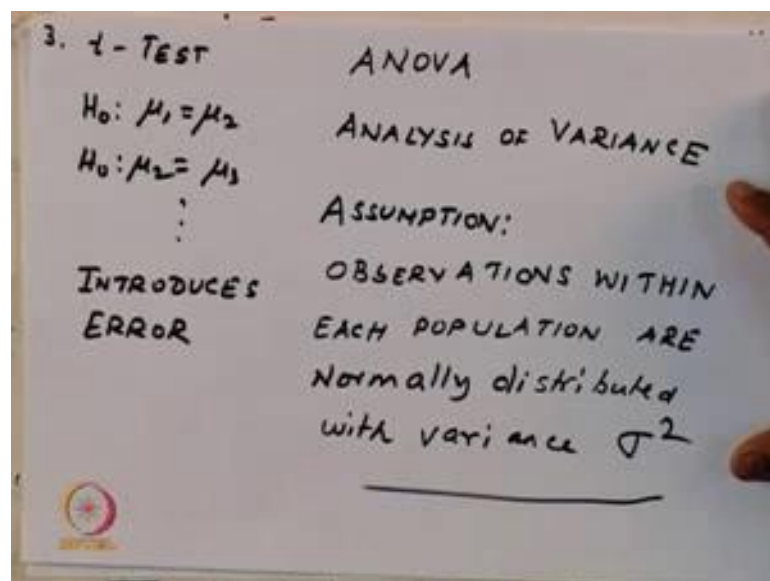 3. t-TEST
H₀: μ₁ = μ₂
H₀: μ₂ = μ₃
⋮
INTRODUCES
ERROR
ANOVA
ANALYSIS OF VARIANCE
ASSUMPTION:
OBSERVATIONS WITHIN
EACH POPULATION ARE
Normally distributed
with variance σ²